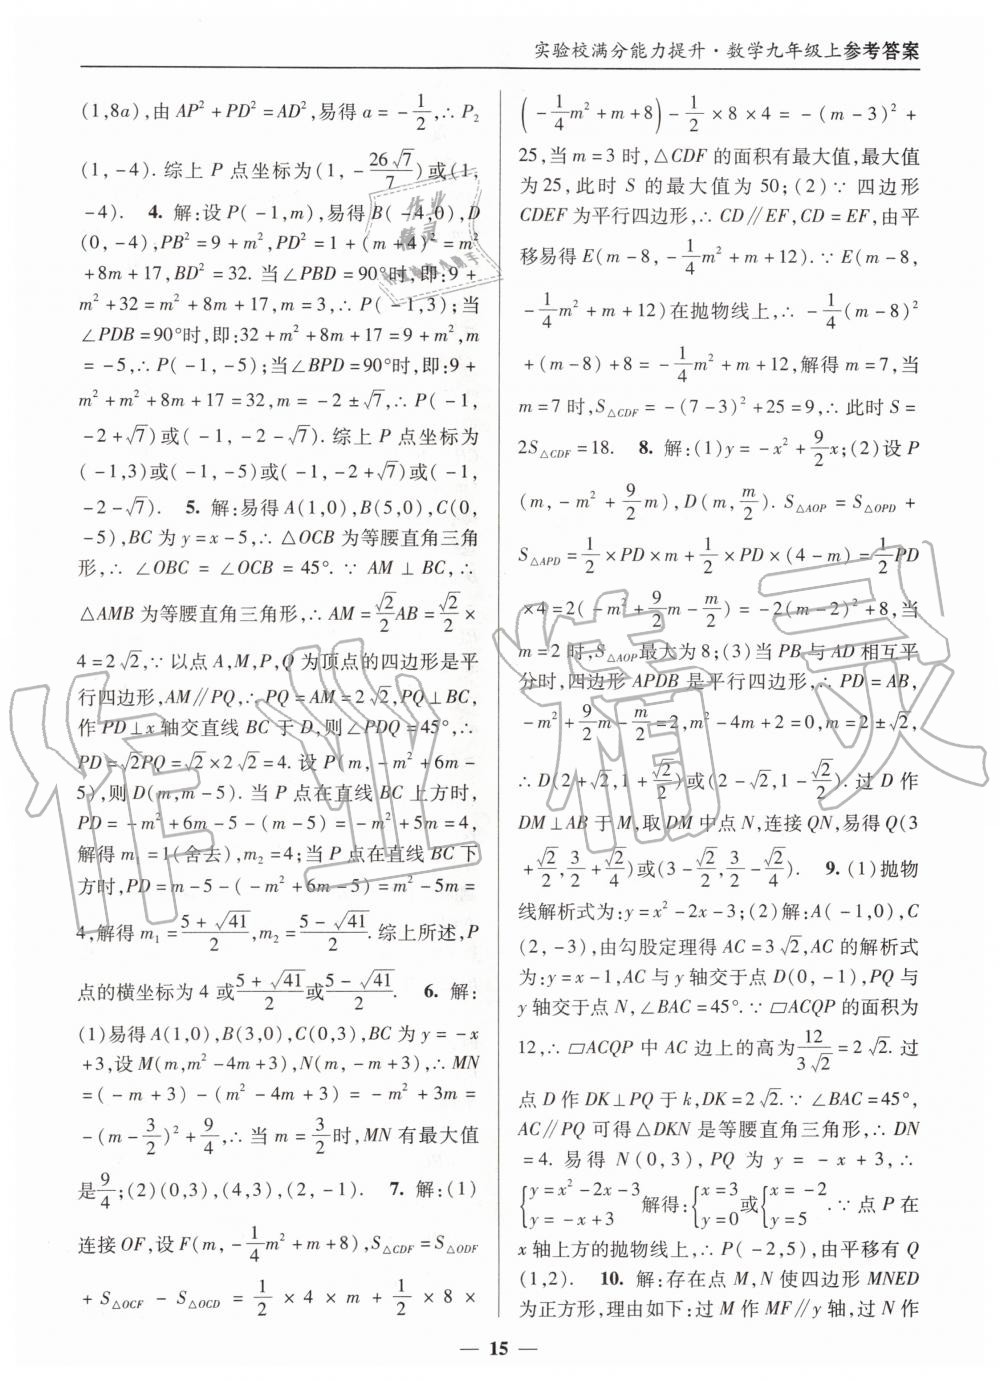 实验校满分能力提升·数学九年级上参考答案
(1,8a),由 AP²+PD²=AD²,易得 a=-1/2,∴P₂
(1,-4). 综上 P 点坐标为(1,-26√7/7)或(1,
-4). 4. 解:设P(-1,m),易得B(-4,0),D
(0,-4),PB²=9+m²,PD²=1+(m+4)²=m²
+8m+17,BD²=32. 当∠PBD=90°时,即:9+
m²+32=m²+8m+17,m=3,∴P(-1,3);当
∠PDB=90°时,即:32+m²+8m+17=9+m²,m
=-5,∴P(-1,-5);当∠BPD=90°时,即:9+
m²+m²+8m+17=32,m=-2±√7,∴P(-1,
-2+√7)或(-1,-2-√7). 综上P点坐标为
(-1,3)或(-1,-5)或(-1,-2+√7)或(-1,
-2-√7). 5. 解:易得A(1,0),B(5,0),C(0,
-5),BC为y=x-5,∴△OCB为等腰直角三角
形,∴∠OBC=∠OCB=45°.∵AM⊥BC,∴
△AMB为等腰直角三角形,∴AM=√2/2AB=√2/2×
4=2√2,∵以点A,M,P,Q为顶点的四边形是平
行四边形,AM∥PQ,∴PQ=AM=2√2,PQ⊥BC,
作PD⊥x轴交直线BC于D,则∠PDQ=45°,∴
PD=√2PQ=√2×2√2=4. 设P(m,-m²+6m-
5),则D(m,m-5). 当P点在直线BC上方时,
PD=-m²+6m-5-(m-5)=-m²+5m=4,
解得m₁=1(舍去),m₂=4;当P点在直线BC下
方时,PD=m-5-(-m²+6m-5)=m²-5m=
4,解得m₁=(5+√41)/2,m₂=(5-√41)/2. 综上所述,P
点的横坐标为4或(5+√41)/2或(5-√41)/2. 6. 解:
(1)易得A(1,0),B(3,0),C(0,3),BC为y=-x
+3,设M(m,m²-4m+3),N(m,-m+3),∴MN
=(-m+3)-(m²-4m+3)=-m²+3m=
-(m-3/2)²+9/4,∴当m=3/2时,MN有最大值
是9/4;(2)(0,3),(4,3),(2,-1). 7. 解:(1)
连接OF,设F(m,-1/4m²+m+8),S△CDF=S△ODF
+S△OCF-S△OCD=1/2×4×m+1/2×8×
(-1/4m²+m+8)-1/2×8×4=-(m-3)²+
25,当m=3时,△CDF的面积有最大值,最大值
为25,此时S的最大值为50;(2)∵四边形
CDEF为平行四边形,∴CD∥EF,CD=EF,由平
移易得E(m-8,-1/4m²+m+12).∵E(m-8,
-1/4m²+m+12)在抛物线上,∴-1/4(m-8)²
+(m-8)+8=-1/4m²+m+12,解得m=7,当
m=7时,S△CDF=-(7-3)²+25=9,∴此时S=
2S△CDF=18. 8. 解:(1)y=-x²+9/2x;(2)设P
(m,-m²+9/2m),D(m,m/2). S△AOP=S△OPD+
S△APD=1/2×PD×m+1/2×PD×(4-m)=1/2PD
×4=2(-m²+9/2m-m/2)=-2(m-2)²+8,当
m=2时,S△AOP最大为8;(3)当PB与AD相互平
分时,四边形APDB是平行四边形,∴PD=AB,
-m²+9/2m-m/2=2,m²-4m+2=0,m=2±√2,
∴D(2+√2,1+√2/2)或(2-√2,1-√2/2). 过D作
DM⊥AB于M,取DM中点N,连接QN,易得Q(3
+√2/2,3/2+√2/4)或(3-√2/2,3/2-√2/4). 9. (1)抛物
线解析式为:y=x²-2x-3;(2)解:A(-1,0),C
(2,-3),由勾股定理得AC=3√2,AC的解析式
为:y=x-1,AC与y轴交于点D(0,-1),PQ与
y轴交于点N,∠BAC=45°.∵▱ACQP的面积为
12,∴▱ACQP中AC边上的高为12/(3√2)=2√2. 过
点D作DK⊥PQ于k,DK=2√2.∵∠BAC=45°,
AC∥PQ可得△DKN是等腰直角三角形,∴DN
=4. 易得N(0,3),PQ为y=-x+3,∴
{y=x²-2x-3 y=-x+3 解得:{x=3 y=0 或{x=-2 y=5 .∵点P在
x轴上方的抛物线上,∴P(-2,5),由平移有Q
(1,2). 10. 解:存在点M,N使四边形MNED
为正方形,理由如下:过M作MF∥y轴,过N作
— 15 —
作业精灵
作业
精灵